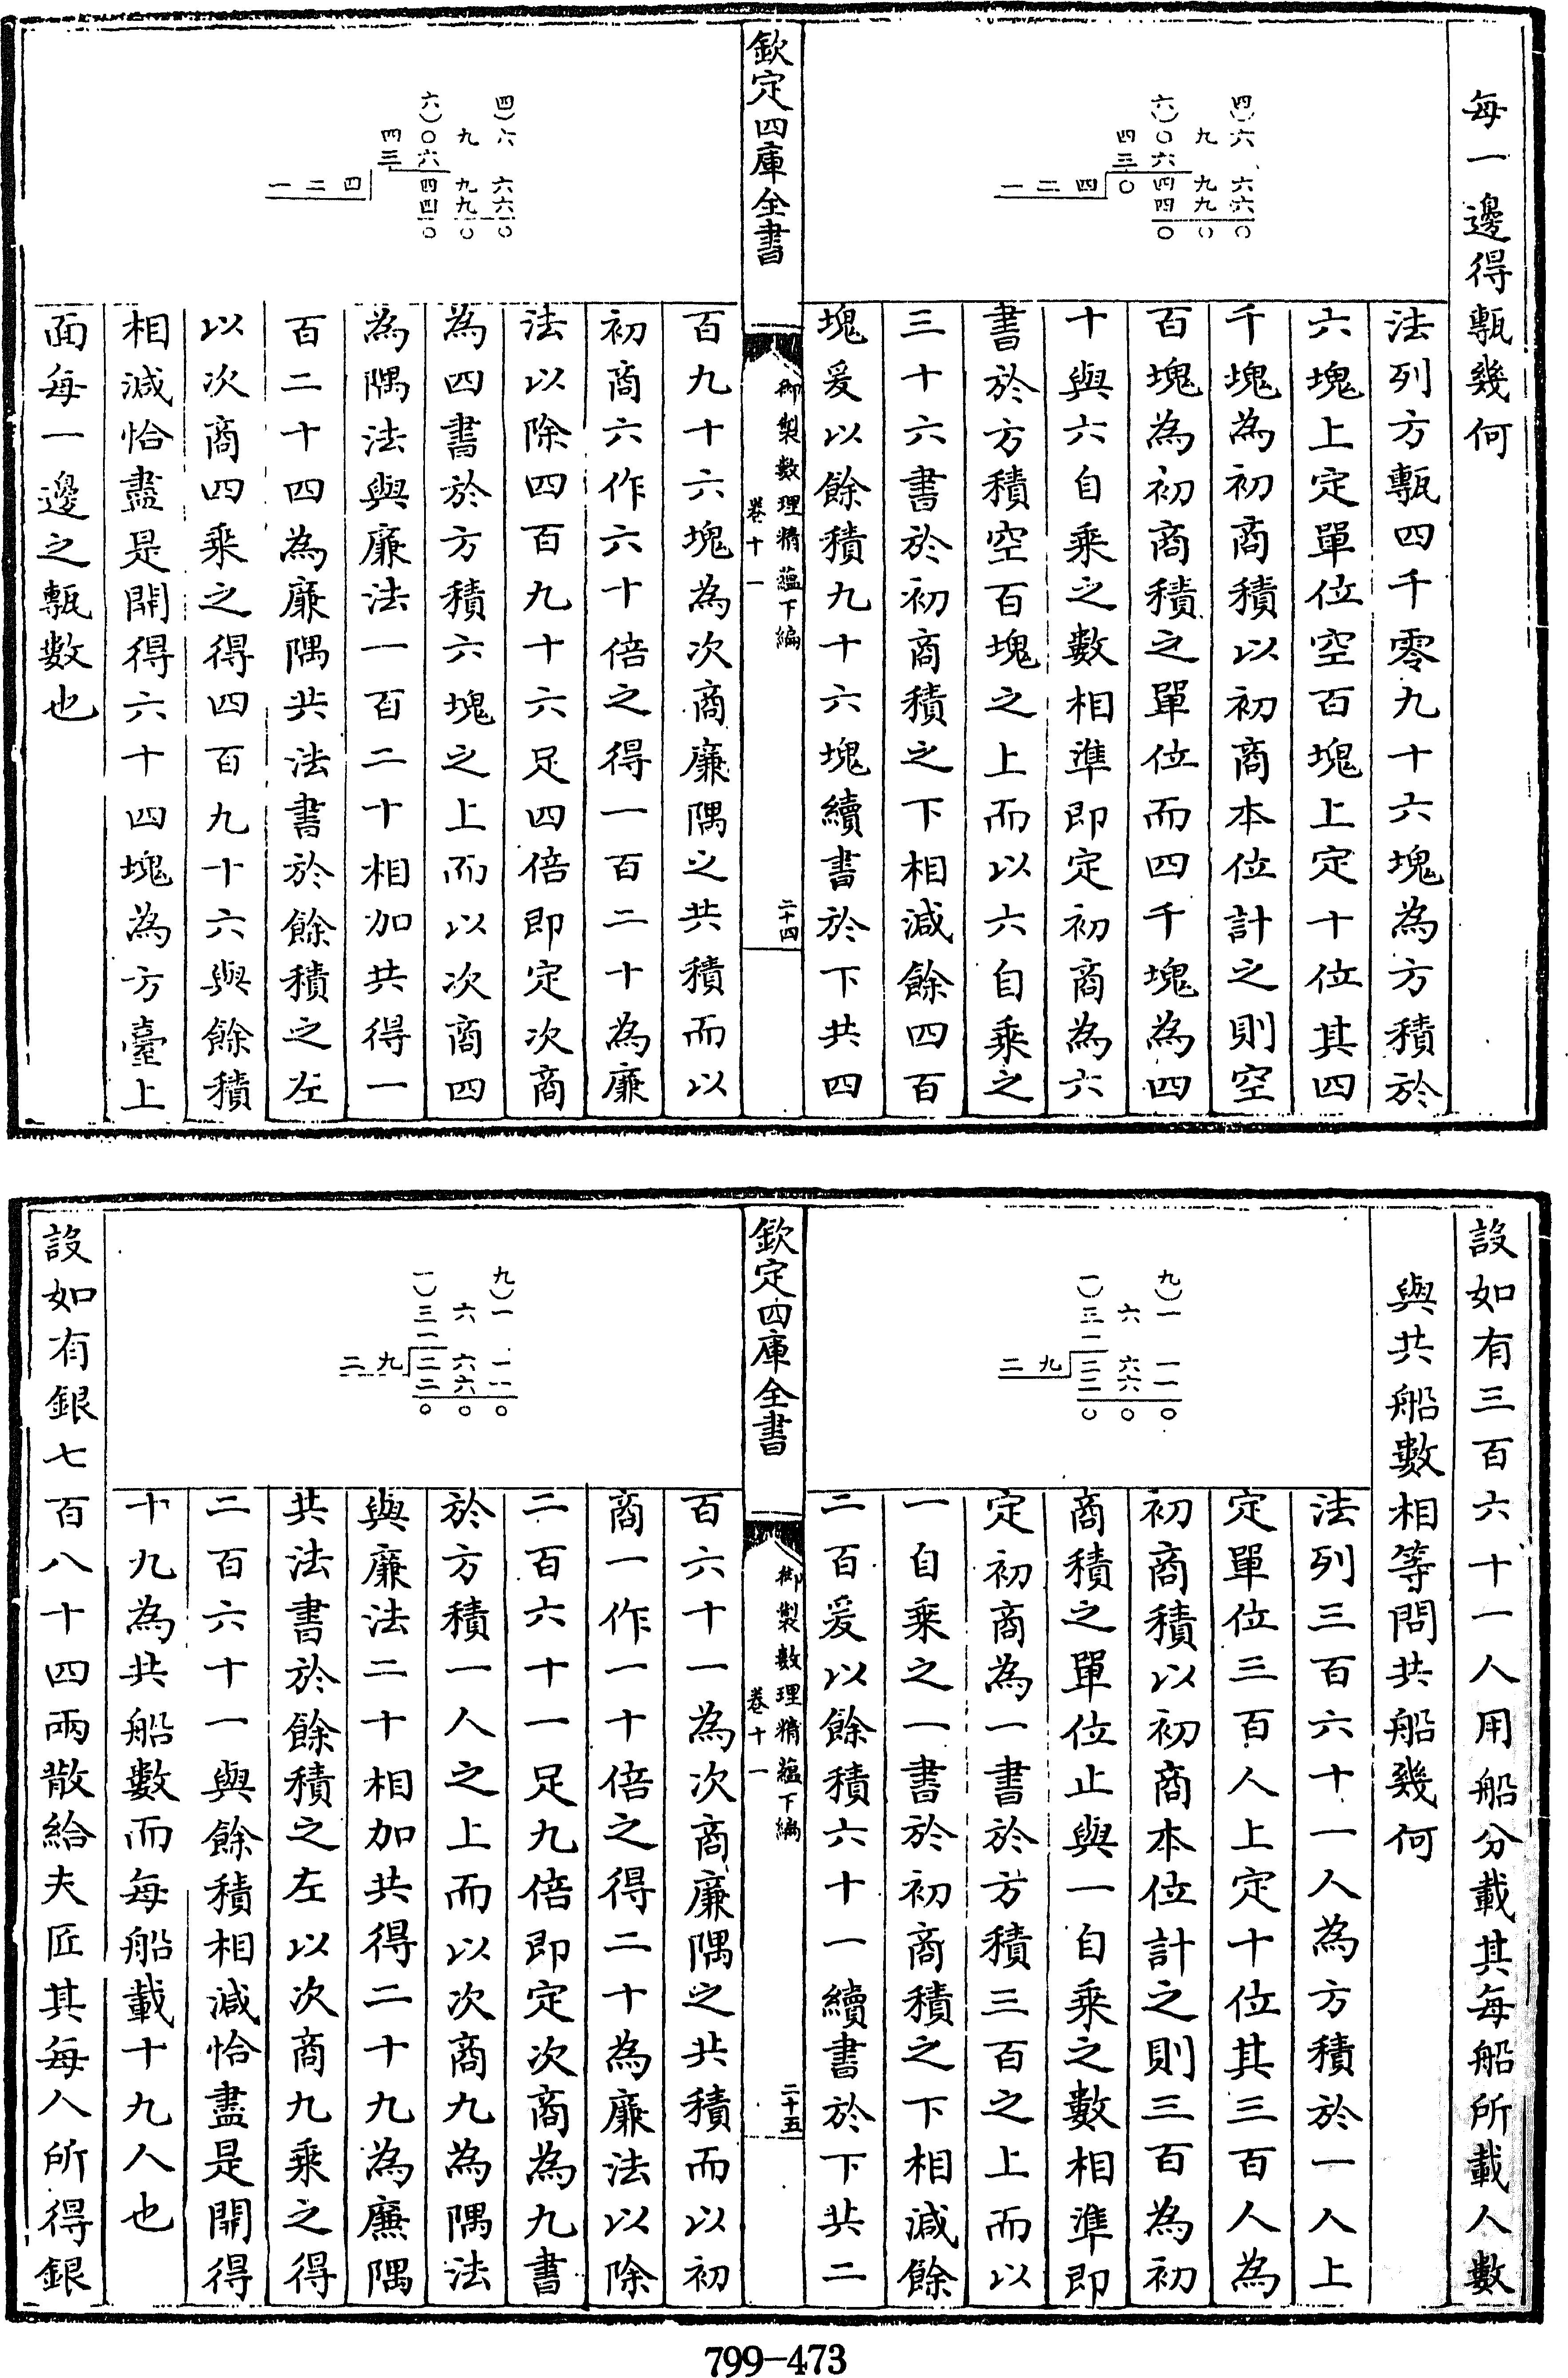 每一邊得甎幾何
四)六
九
六)〇六
四三
四二一
〇四九六
四九六
〇〇〇
法列方甎四千零九十六塊為方積於
六塊上定單位空百塊上定十位其四
千塊為初商積以初商本位計之則空
百塊為初商積之單位而四千塊為四
十與六自乘之數相準即定初商為六
書於方積空百塊之上而以六自乘之
三十六書於初商積之下相減餘四百
塊爰以餘積九十六塊續書於下共四
欽定四庫全書
御製數理精蘊下編
卷十一
二十四
四)六
九
六)〇六
四三
四二一
四九六
四九六
〇〇〇
百九十六塊為次商廉隅之共積而以
初商六作六十倍之得一百二十為廉
法以除四百九十六足四倍即定次商
為四書於方積六塊之上而以次商四
為隅法與廉法一百二十相加共得一
百二十四為廉隅共法書於餘積之左
以次商四乘之得四百九十六與餘積
相減恰盡是開得六十四塊為方臺上
面每一邊之甎數也
設如有三百六十一人用船分載其每船所載人數
與共船數相等問共船幾何
九)一
六
一)三一
九二
二六一
二六一
〇〇〇
法列三百六十一人為方積於一人上
定單位三百人上定十位其三百人為
初商積以初商本位計之則三百為初
商積之單位止與一自乘之數相準即
定初商為一書於方積三百之上而以
一自乘之一書於初商積之下相減餘
二百爰以餘積六十一續書於下共二
欽定四庫全書
御製數理精蘊下編
卷十一
二十五
九)一
六
一)三一
九二
二六一
二六一
〇〇〇
百六十一為次商廉隅之共積而以初
商一作一十倍之得二十為廉法以除
二百六十一足九倍即定次商為九書
於方積一人之上而以次商九為隅法
與廉法二十相加共得二十九為廉隅
共法書於餘積之左以次商九乘之得
二百六十一與餘積相減恰盡是開得
十九為共船數而每船載十九人也
設如有銀七百八十四兩散給夫匠其每人所得銀
799-473